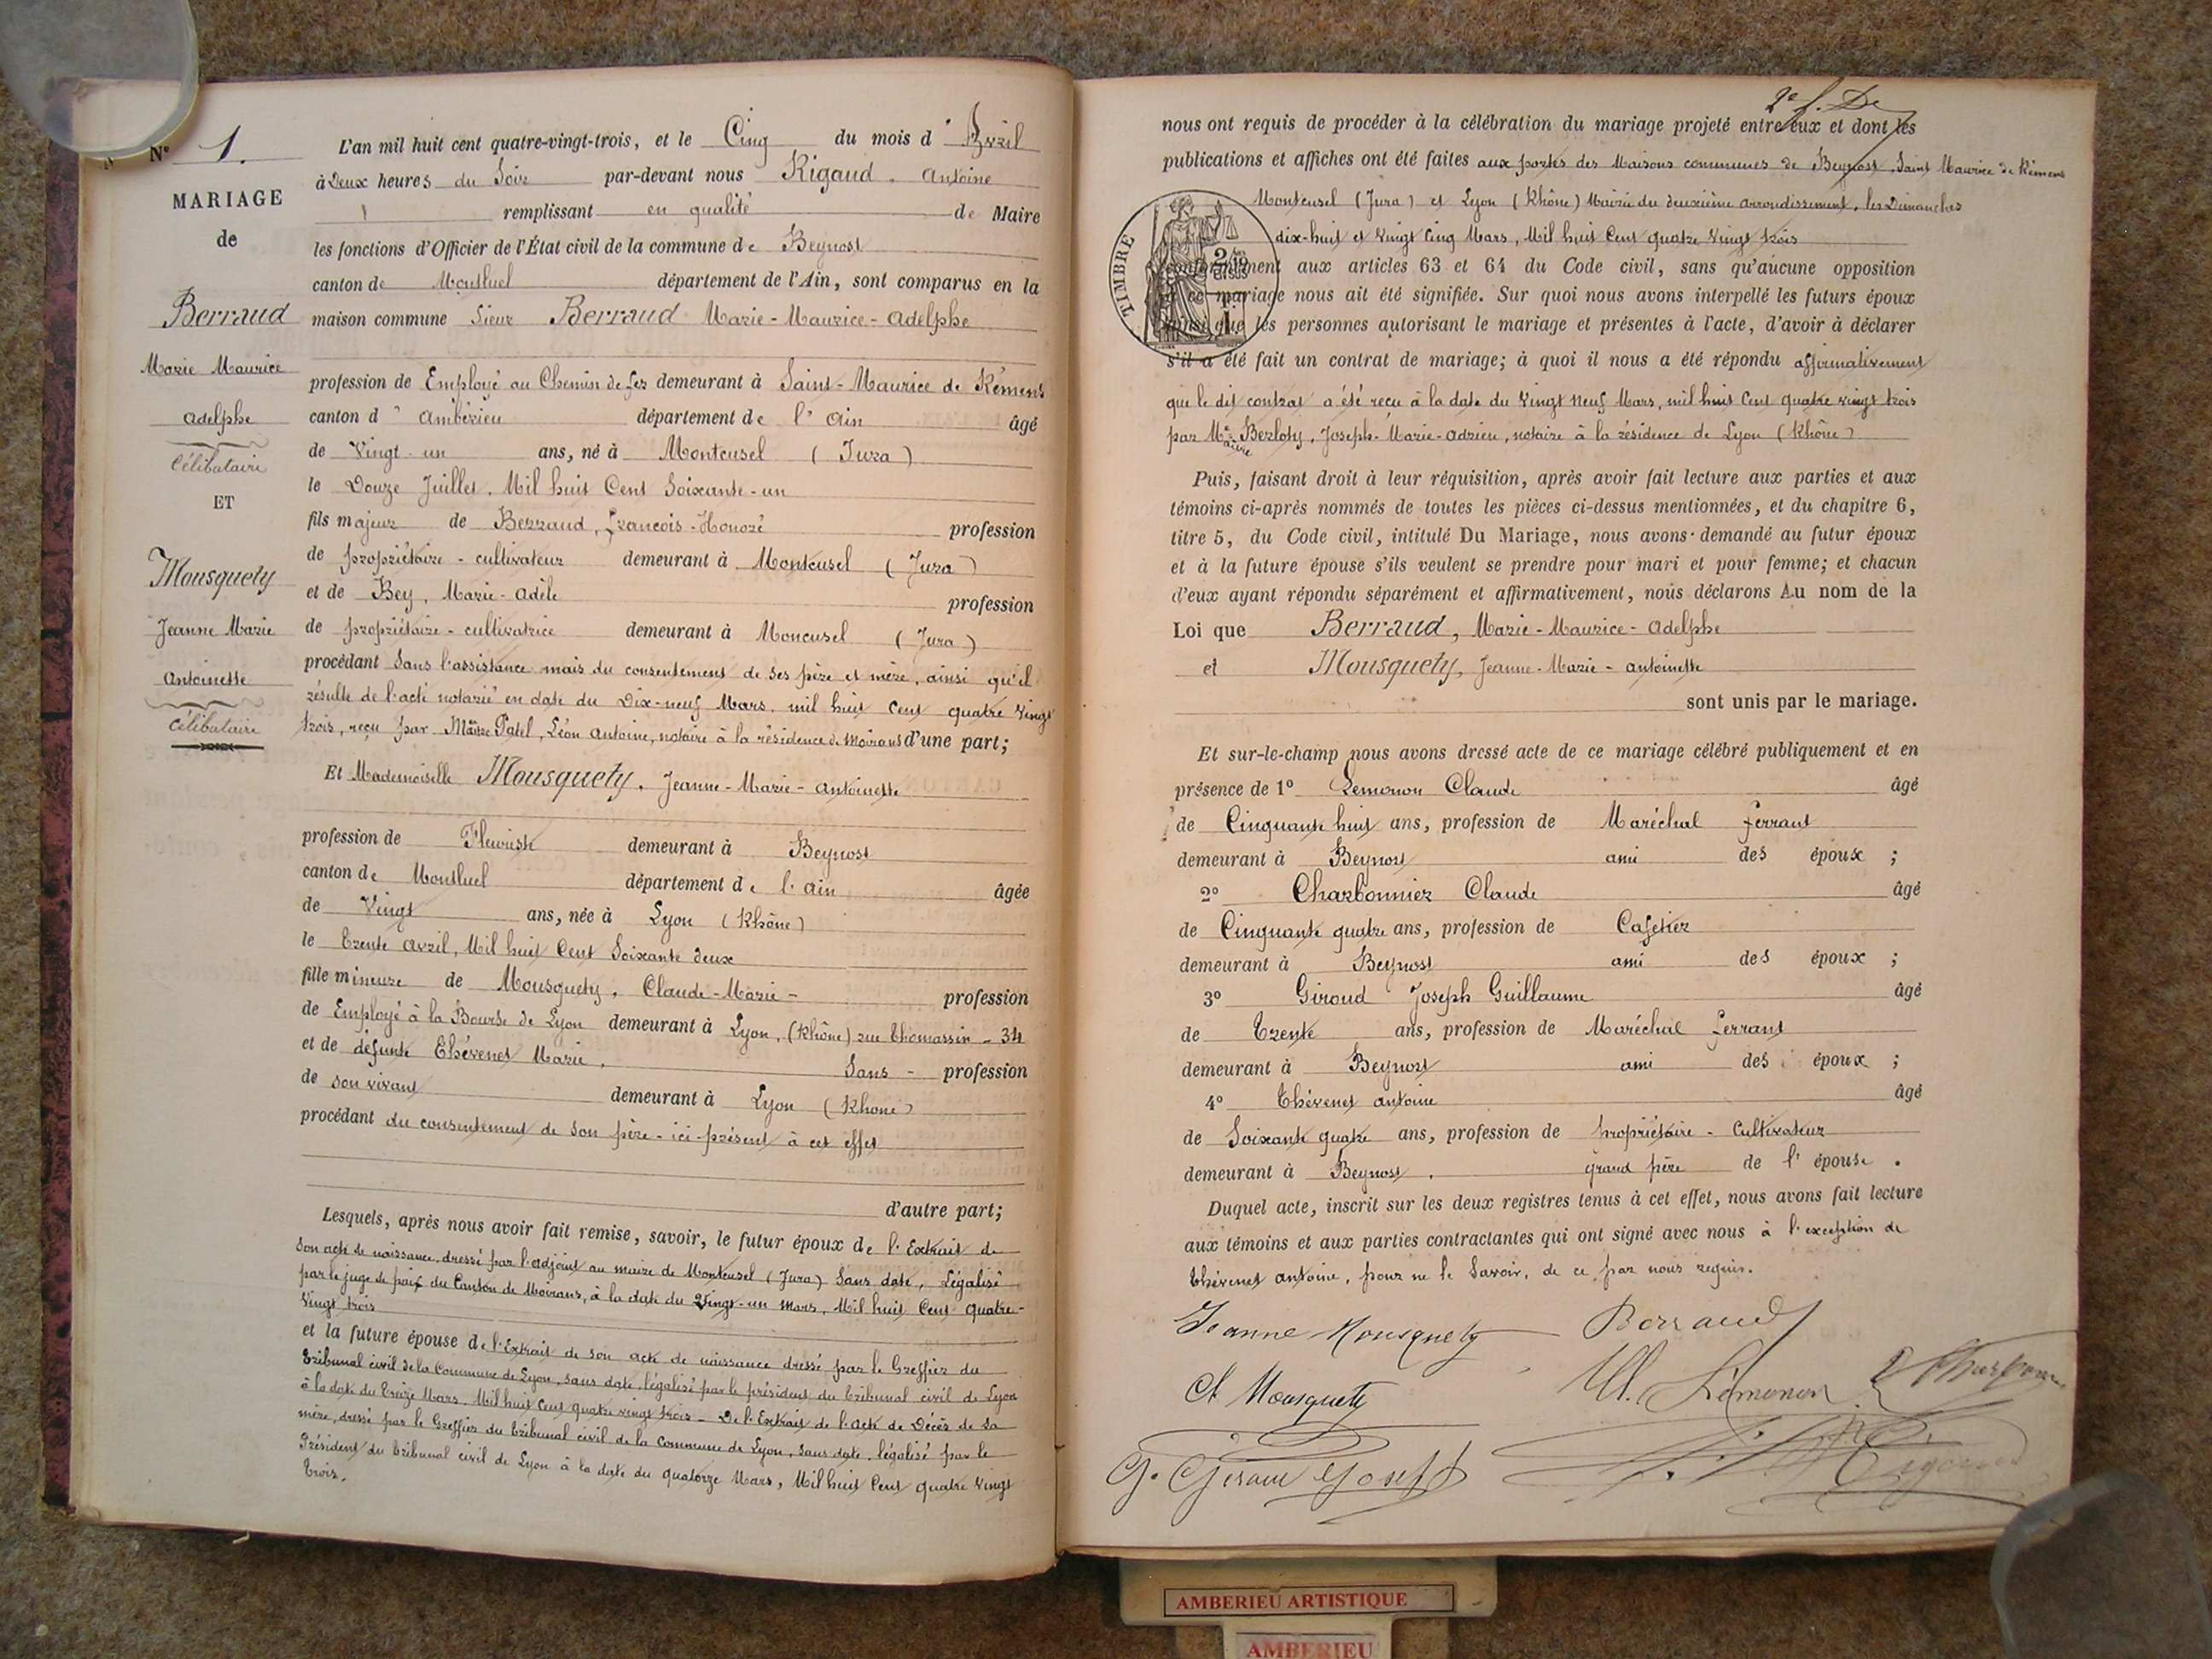 Nº 1.
MARIAGE
de
Berraud
Marie Maurice
Adelphe
Célibataire
ET
Mousquety
Jeanne Marie
Antoinette
Célibataire
L'an mil huit cent quatre-vingt-trois, et le Cinq du mois d'Avril
à Deux heures du Soir par-devant nous Rigaud Antoine
remplissant en qualité de Maire
les fonctions d'Officier de l'État civil de la commune de Beynost
canton de Montluel département de l'Ain, sont comparus en la
maison commune Sieur Berraud Marie-Maurice-Adelphe
profession de Employé au Chemin de fer demeurant à Saint-Maurice de Rémens
canton d'Ambérieu département de l'Ain âgé
de Vingt-un ans, né à Montcusel (Jura)
le Douze Juillet, Mil huit Cent Soixante-un
fils majeur de Berraud, François-Honoré profession
de propriétaire-cultivateur demeurant à Montcusel (Jura)
et de Bey, Marie-Adèle profession
de propriétaire-cultivatrice demeurant à Moncusel (Jura)
procédant Sans l'assistance mais du consentement de ses père et mère, ainsi qu'il
résulte de l'acte notarié en date du Dix-neuf Mars, mil huit Cent quatre vingt
trois, reçu par Maître Patel, Léon Antoine, notaire à la résidence de Moirans d'une part;
Et Mademoiselle Mousquety, Jeanne-Marie-Antoinette
profession de Fleuriste demeurant à Beynost
canton de Montluel département de l'Ain âgée
de Vingt ans, née à Lyon (Rhône)
le Trente Avril, Mil huit Cent Soixante deux
fille mineure de Mousquety, Claude-Marie - profession
de Employé à la Bourse de Lyon demeurant à Lyon, (Rhône) rue Thomassin - 34
et de défunte Thévenet Marie, Sans - profession
de son vivant demeurant à Lyon (Rhone)
procédant du consentement de son père-ici-présent à cet effet
d'autre part;
Lesquels, après nous avoir fait remise, savoir, le futur époux de l'Extrait de
son acte de naissance, dressé par l'adjoint au maire de Montcusel (Jura) Sans date, Légalisé
par le juge de paix du Canton de Moirans, à la date du Vingt-un Mars, Mil huit Cent quatre-
Vingt trois
et la future épouse de l'Extrait de son acte de naissance dressé par le Greffier du
Tribunal civil de la Commune de Lyon, sans date, légalisé par le président du Tribunal civil de Lyon
à la date du Treize Mars, Mil huit Cent quatre vingt trois - De l'Extrait de l'acte de Décès de sa
mère, dressé par le Greffier du Tribunal civil de la Commune de Lyon, sans date, légalisé par le
Président du Tribunal civil de Lyon à la date du quatorze Mars, Mil huit Cent quatre Vingt
Trois.
nous ont requis de procéder à la célébration du mariage projeté entre eux et dont les
publications et affiches ont été faites aux portes des Maisons communes de Beynost, Saint Maurice de Rémens
Montcusel (Jura) et Lyon (Rhône) Mairie du deuxième arrondissement, les Dimanches
dix-huit et Vingt Cinq Mars, Mil huit Cent quatre Vingt trois
TIMBRE
conformément aux articles 63 et 64 du Code civil, sans qu'aucune opposition
à ce mariage nous ait été signifiée. Sur quoi nous avons interpellé les futurs époux
ainsi que les personnes autorisant le mariage et présentes à l'acte, d'avoir à déclarer
s'il a été fait un contrat de mariage; à quoi il nous a été répondu affirmativement
que le dit contrat a été reçu à la date du Vingt neuf Mars, mil huit Cent quatre vingt trois
par Maître Berloty, Joseph-Marie-Adrien, notaire à la résidence de Lyon (Rhône)
Puis, faisant droit à leur réquisition, après avoir fait lecture aux parties et aux
témoins ci-après nommés de toutes les pièces ci-dessus mentionnées, et du chapitre 6,
titre 5, du Code civil, intitulé Du Mariage, nous avons demandé au futur époux
et à la future épouse s'ils veulent se prendre pour mari et pour femme; et chacun
d'eux ayant répondu séparément et affirmativement, nous déclarons Au nom de la
Loi que Berraud, Marie-Maurice-Adelphe
et Mousquety, Jeanne-Marie-Antoinette
sont unis par le mariage.
Et sur-le-champ nous avons dressé acte de ce mariage célébré publiquement et en
présence de 1º Lemonon Claude âgé
de Cinquante huit ans, profession de Maréchal ferrant
demeurant à Beynost ami des époux ;
2º Charbonnier Claude âgé
de Cinquante quatre ans, profession de Cafetier
demeurant à Beynost ami des époux ;
3º Giroud Joseph Guillaume âgé
de Trente ans, profession de Maréchal ferrant
demeurant à Beynost ami des époux ;
4º Thévenet Antoine âgé
de Soixante quatre ans, profession de propriétaire-Cultivateur
demeurant à Beynost, grand père de l'épouse.
Duquel acte, inscrit sur les deux registres tenus à cet effet, nous avons fait lecture
aux témoins et aux parties contractantes qui ont signé avec nous à l'exception de
Thévenet Antoine, pour ne le Savoir, de ce par nous requis.
Jeanne Mousquety Berraud
Cl Mousquety Lémonon
AMBERIEU ARTISTIQUE
AMBERIEU